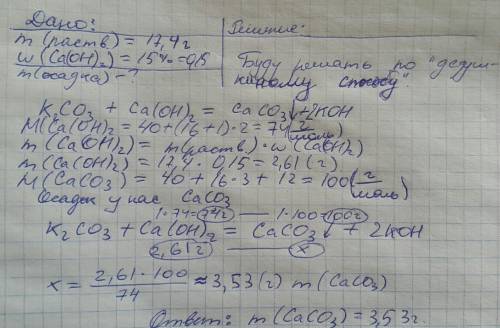 Дано:
Решение:
m(раств) = 17,4г
w(Ca(OH)₂) = 15% = 0,15
m(осадка) - ?
Буду решать по "дедуш-
киному способу".
K₂CO₃ + Ca(OH)₂ = CaCO₃↓ + 2KOH
M(Ca(OH)₂) = 40 + (16 + 1) · 2 = 74 (г/моль)
m(Ca(OH)₂) = m(раств) · w(Ca(OH)₂)
m(Ca(OH)₂) = 17,4 · 0,15 = 2,61 (г)
M(CaCO₃) = 40 + 16 · 3 + 12 = 100 (г/моль)
Осадок у нас CaCO₃
1 · 74 = 74г — 1 · 100 = 100г
K₂CO₃ + Ca(OH)₂ = CaCO₃↓ + 2KOH
2,61г — x
x = 2,61 · 100 / 74 ≈ 3,53 (г) m(CaCO₃)
Ответ: m(CaCO₃) = 3,53г.